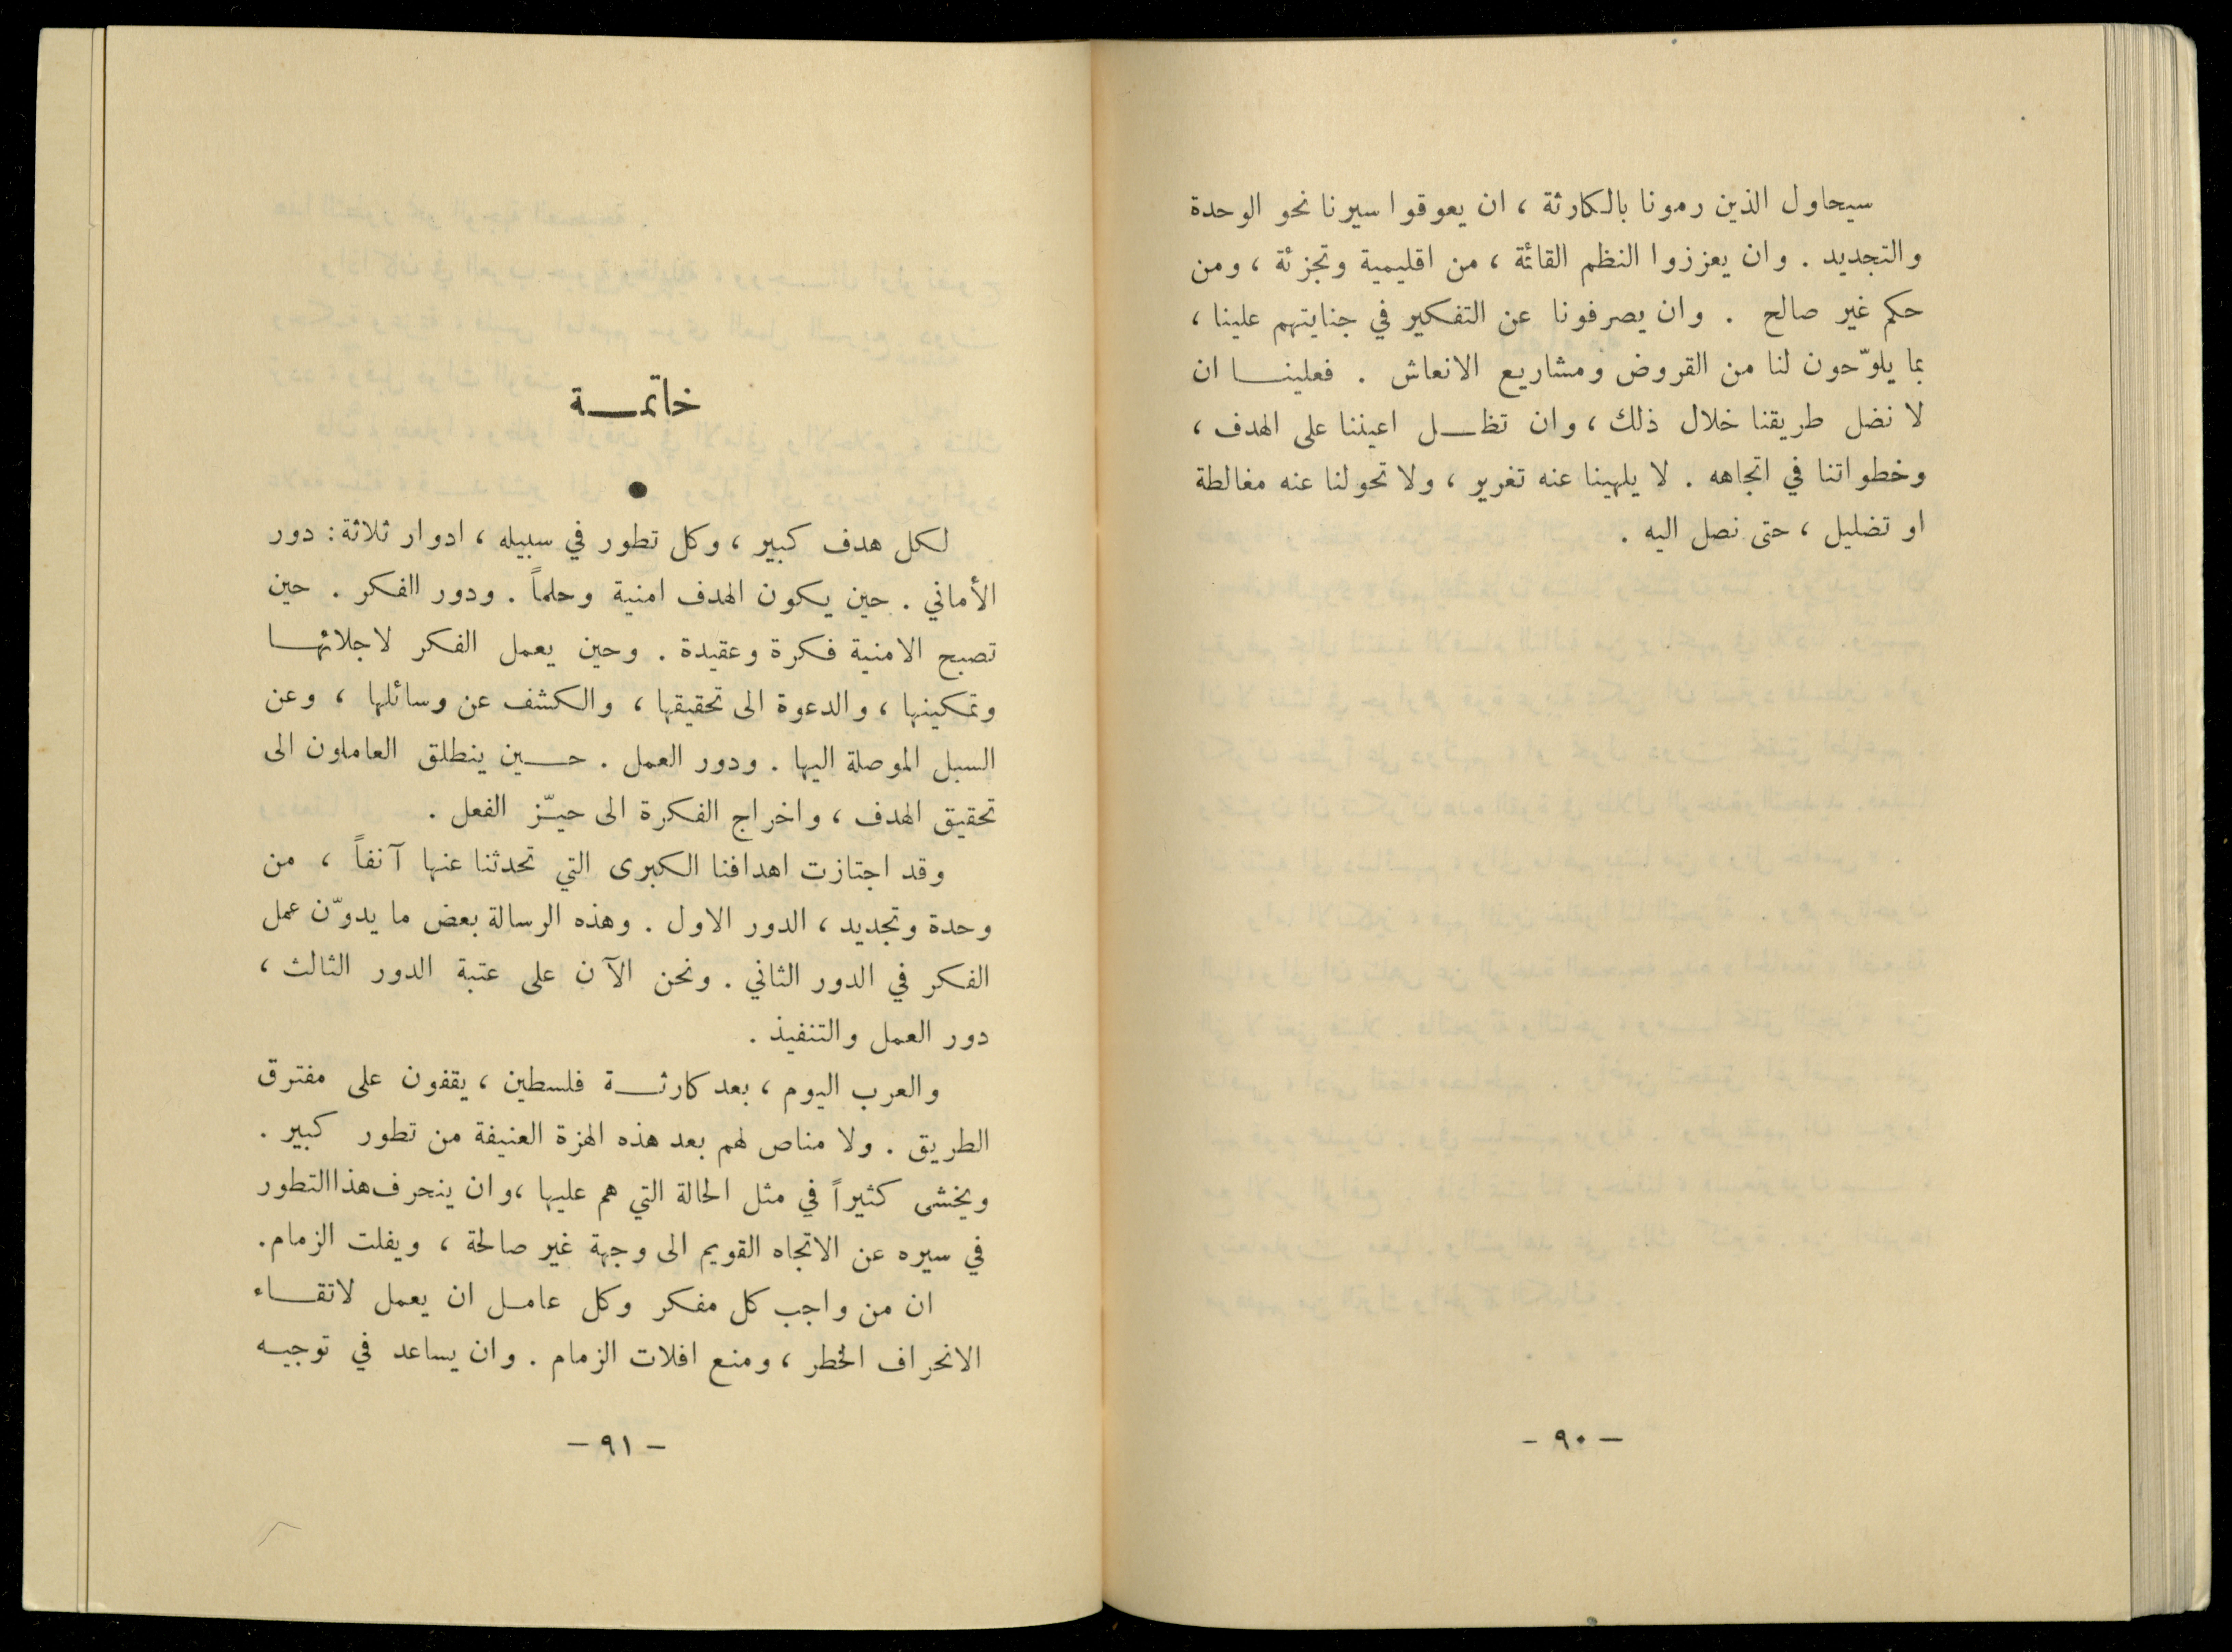 سيحاول الذين رمونا بالكارثة ، ان يعوقوا سيرنا نحو الوحدة
والتجديد . وان يعززوا النظم القائمة ، من اقليمية وتجزئة ، ومن
حكم غير صالح . وان يصرفونا عن التفكير في جنايتهم علينا ،
بما يلوّحون لنا من القروض ومشاريع الانعاش . فعلينـــا ان
لا نضل طريقنا خلال ذلك ، وان تظـــل اعيننا على الهدف ،
وخطواتنا في اتجاهه . لا يلهينا عنه تغرير ، ولا تحولنا عنه مغالطة
او تضليل ، حتى نصل اليه .
– ٩٠ –
خاتمـــة
●
لكل هدف كبير ، وكل تطور في سبيله ، ادوار ثلاثة : دور
الأماني . حين يكون الهدف امنية وحلماً . ودور الفكر . حين
تصبح الامنية فكرة وعقيدة . وحين يعمل الفكر لاجلائهـــا
وتمكينها ، والدعوة الى تحقيقها ، والكشف عن وسائلها ، وعن
السبل الموصلة اليها . ودور العمل . حـــين ينطلق العاملون الى
تحقيق الهدف ، واخراج الفكرة الى حيـّز الفعل .
وقد اجتازت اهدافنا الكبرى التي تحدثنا عنها آنفاً ، من
وحدة وتجديد ، الدور الاول . وهذه الرسالة بعض ما يدوّن عمل
الفكر في الدور الثاني . ونحن الآن على عتبة الدور الثالث ،
دور العمل والتنفيذ .
والعرب اليوم ، بعد كارثـــة فلسطين ، يقفون على مفترق
الطريق . ولا مناص لهم بعد هذه الهزة العنيفة من تطور كبير .
ويخشى كثيراً في مثل الحالة التي هم عليها ، وان ينحرف هذا التطور
في سيره عن الاتجاه القويم الى وجهة غير صالحة ، ويفلت الزمام .
ان من واجب كل مفكر وكل عامـل ان يعمل لاتقـــاء
الانحراف الخطر ، ومنع افلات الزمام . وان يساعد في توجيـه
– ٩١ –